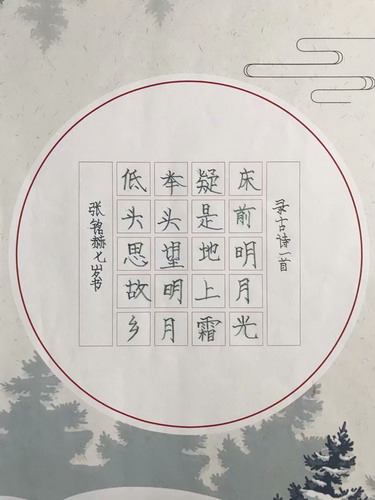 录古诗一首
床前明月光
疑是地上霜
举头望明月
低头思故乡
张铭赫七岁书